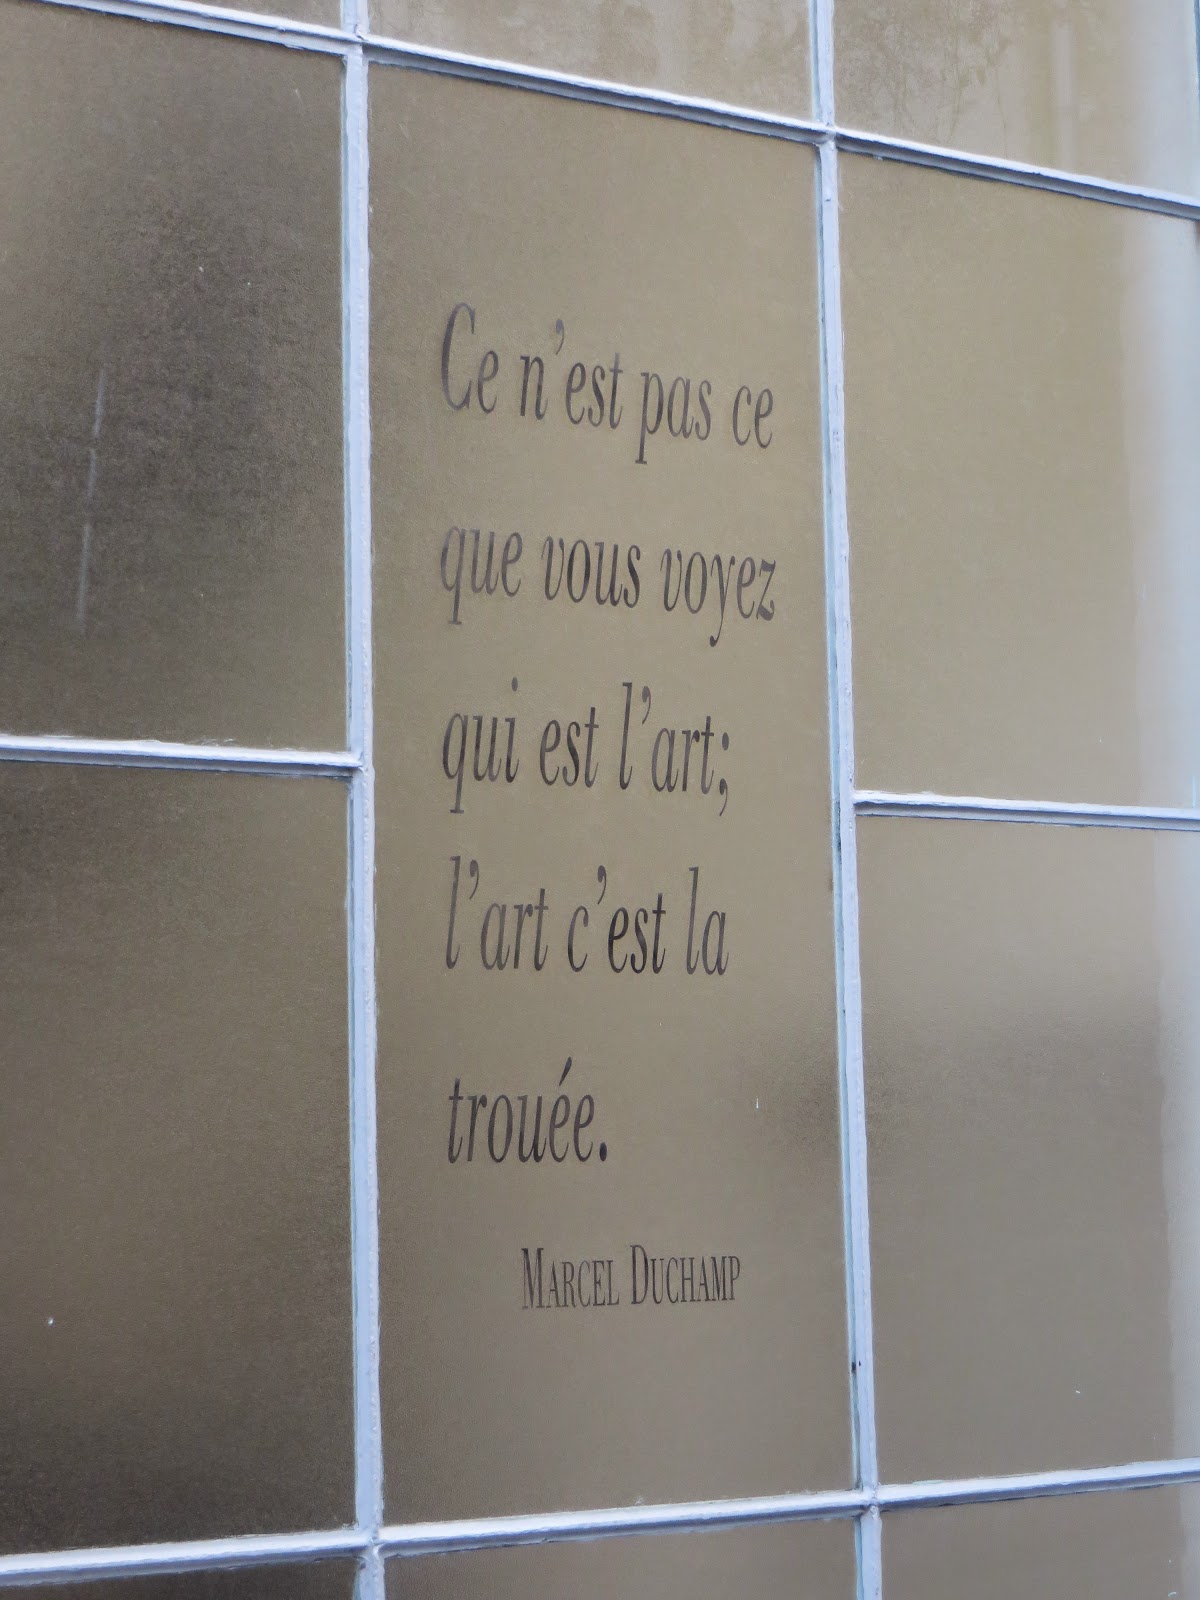 Ce n'est pas ce
que vous voyez
qui est l'art;
l'art c'est la
trouée.
MARCEL DUCHAMP